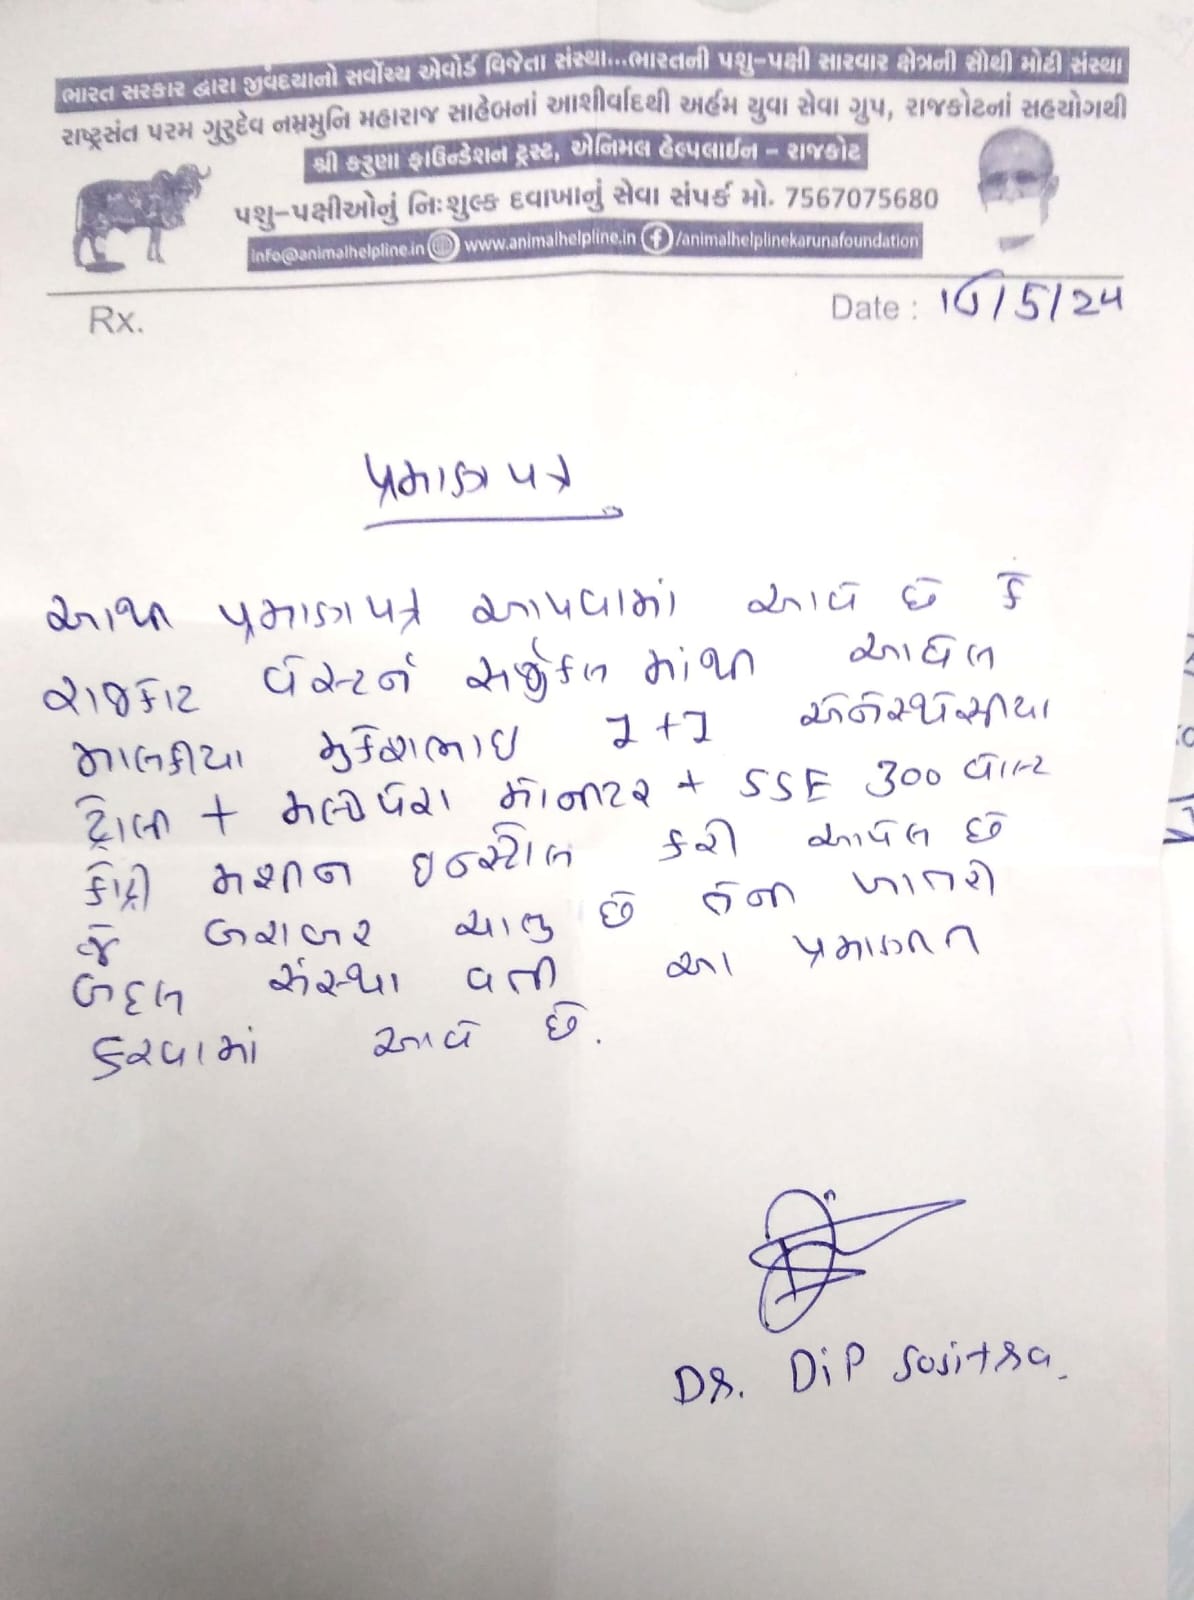 ભારત સરકાર દ્વારા જીવદયાનો સર્વોચ્ચ એવોર્ડ વિજેતા સંસ્થા...ભારતની પશુ-પક્ષી સારવાર ક્ષેત્રની સૌથી મોટી સંસ્થા
રાષ્ટ્રસંત પરમ ગુરુદેવ નમ્રમુનિ મહારાજ સાહેબનાં આશીર્વાદથી અર્હમ યુવા સેવા ગ્રુપ, રાજકોટનાં સહયોગથી
શ્રી કરુણા ફાઉન્ડેશન ટ્રસ્ટ, એનિમલ હેલ્પલાઈન - રાજકોટ
પશુ-પક્ષીઓનું નિઃશુલ્ક દવાખાનું સેવા સંપર્ક મો. 7567075680
info@animalhelpline.in www.animalhelpline.in /animalhelplinekarunafoundation
Rx.
Date : /5/24
પ્રમાણ પત્ર
આથી પ્રમાણપત્ર આપવામાં આવે છે કે
રાજકોટ વેસ્ટર્ન સર્જીકલ માંથી આવેલ
માલકીયા મુકેશભાઇ એનેસ્થેસીયા
ટ્રોલી + મલ્ટીપેરા મોનીટર + SSE 300 વોલ્ટ
કોટ્રી મશીન ઇન્સ્ટોલ કરી આપેલ છે
જે બરાબર ચાલુ છે તેની ખાતરી
બદલ સંસ્થા વતી આ પ્રમાણીત
કરવામાં આવે છે.
Dr. Dip Sojitra